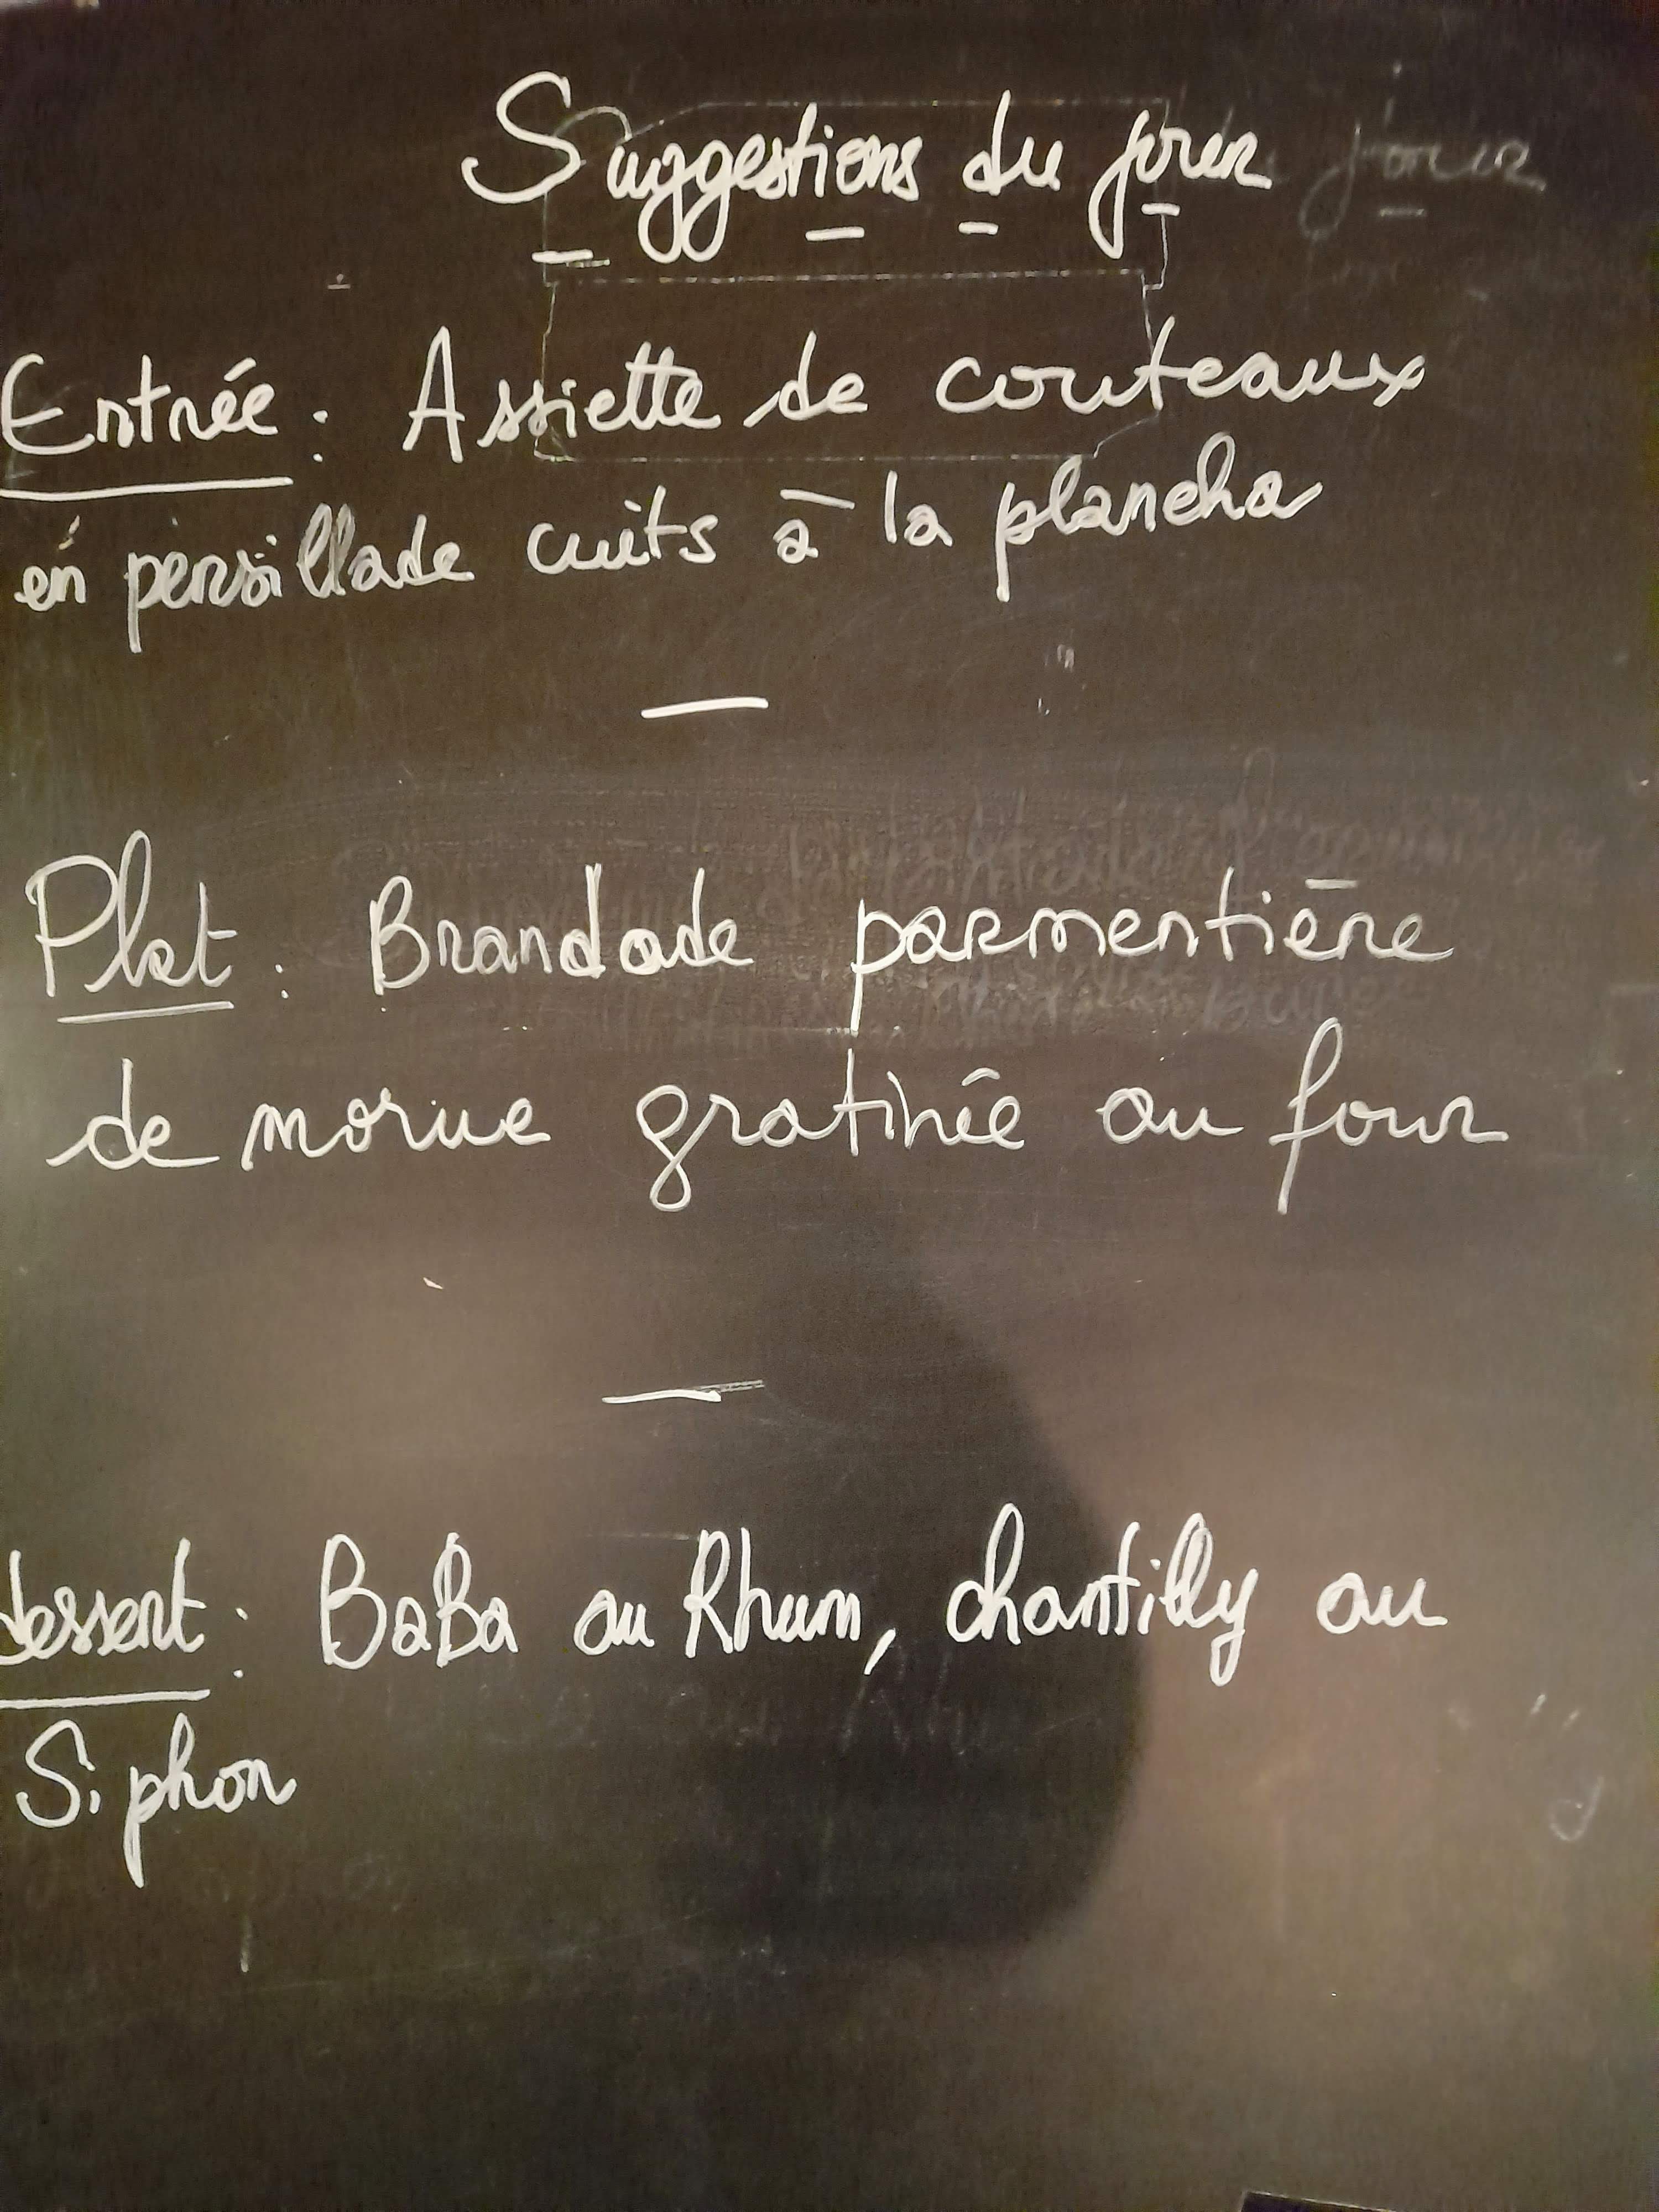 Suggestions du jour
Entrée : Assiette de couteaux
en persillade cuits à la plancha
Plat : Brandade parmentière
de morue gratinée au four
dessert : BaBa au Rhum, chantilly au
Siphon